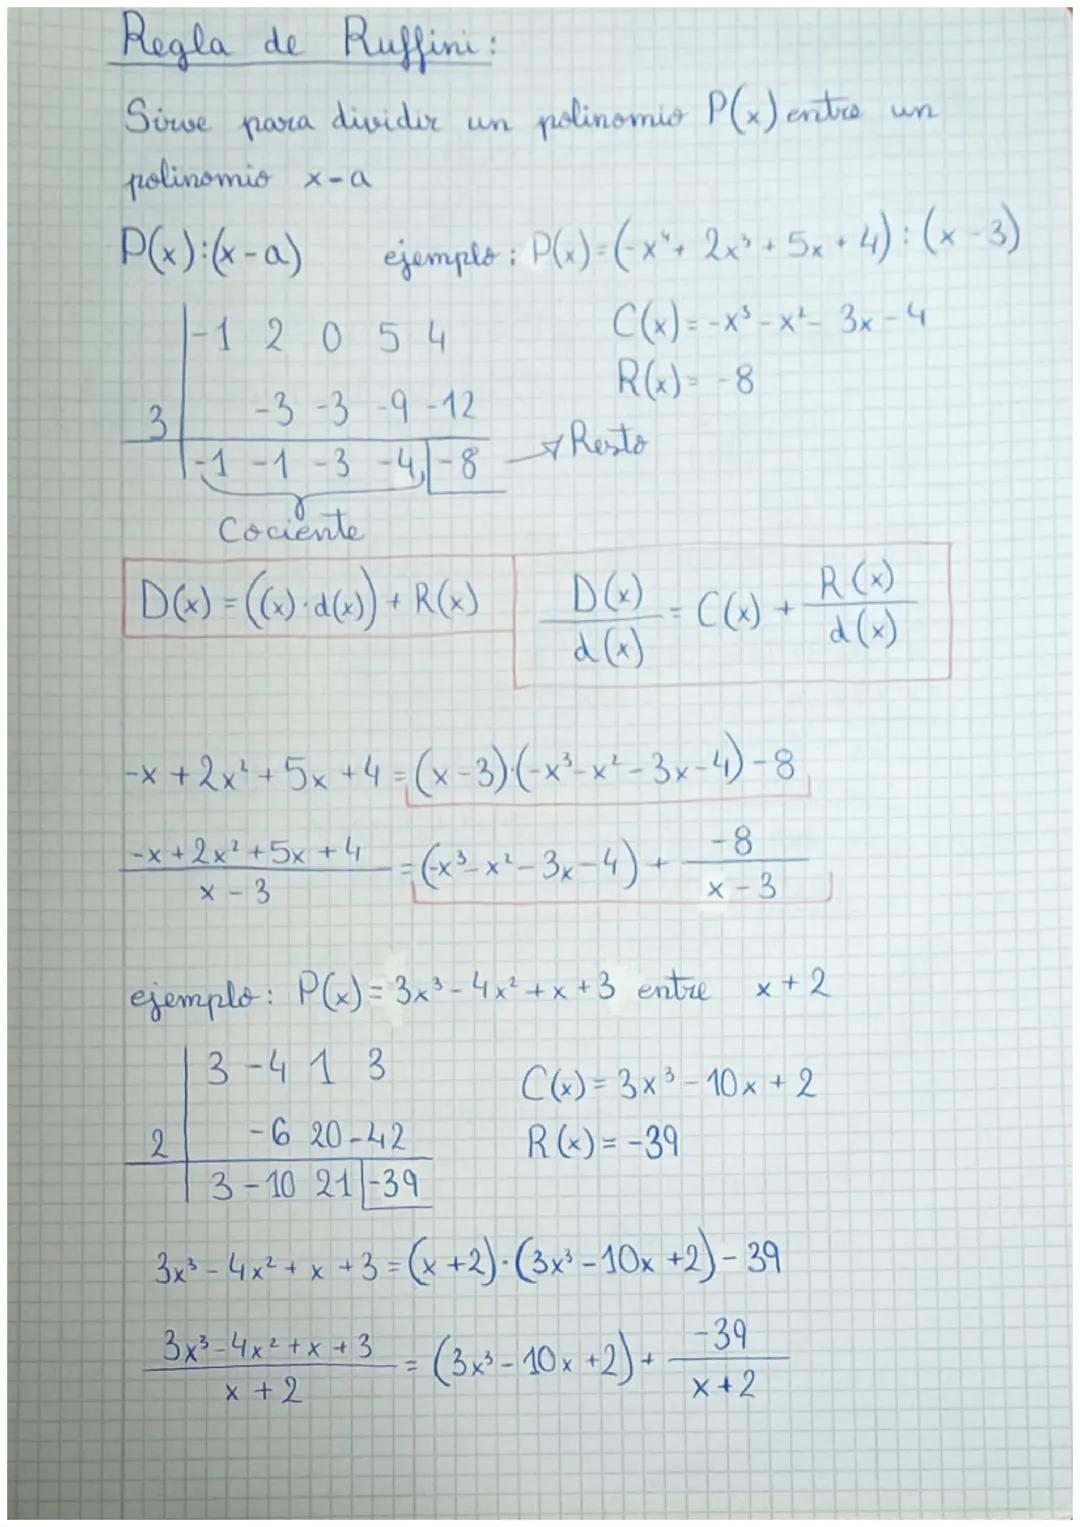 Regla de Ruffini:
Sirve para dividir un polinomio P(x) entre un
polinomio x-a
P(x):(x-a) ejemplo: P(x)=(-x⁴+ 2x³+5x+4):(x-3)
-1 2 0 5 4 C(x)=-x³-x²-3x-4
R(x)=-8
3 -3 -3 -9 -12
-1 -1 -3 -4 -8 → Resto
Cociente
D(x)=((x)·d(x))+R(x) D(x)/d(x) = C(x) + R(x)/d(x)
-x+2x²+5x+4=(x-3)·(-x³-x²-3x-4)-8
-x+2x²+5x+4/x-3 =(-x³-x²-3x-4)+ -8/x-3
ejemplo: P(x)=3x³-4x²+x+3 entre x+2
3 -4 1 3 C(x)=3x³-10x+2
2 -6 20 -42 R(x)=-39
3 -10 21 -39
3x³-4x²+x+3=(x+2)·(3x³-10x+2)-39
3x³-4x²+x+3/x+2 =(3x³-10x+2)+ -39/x+2